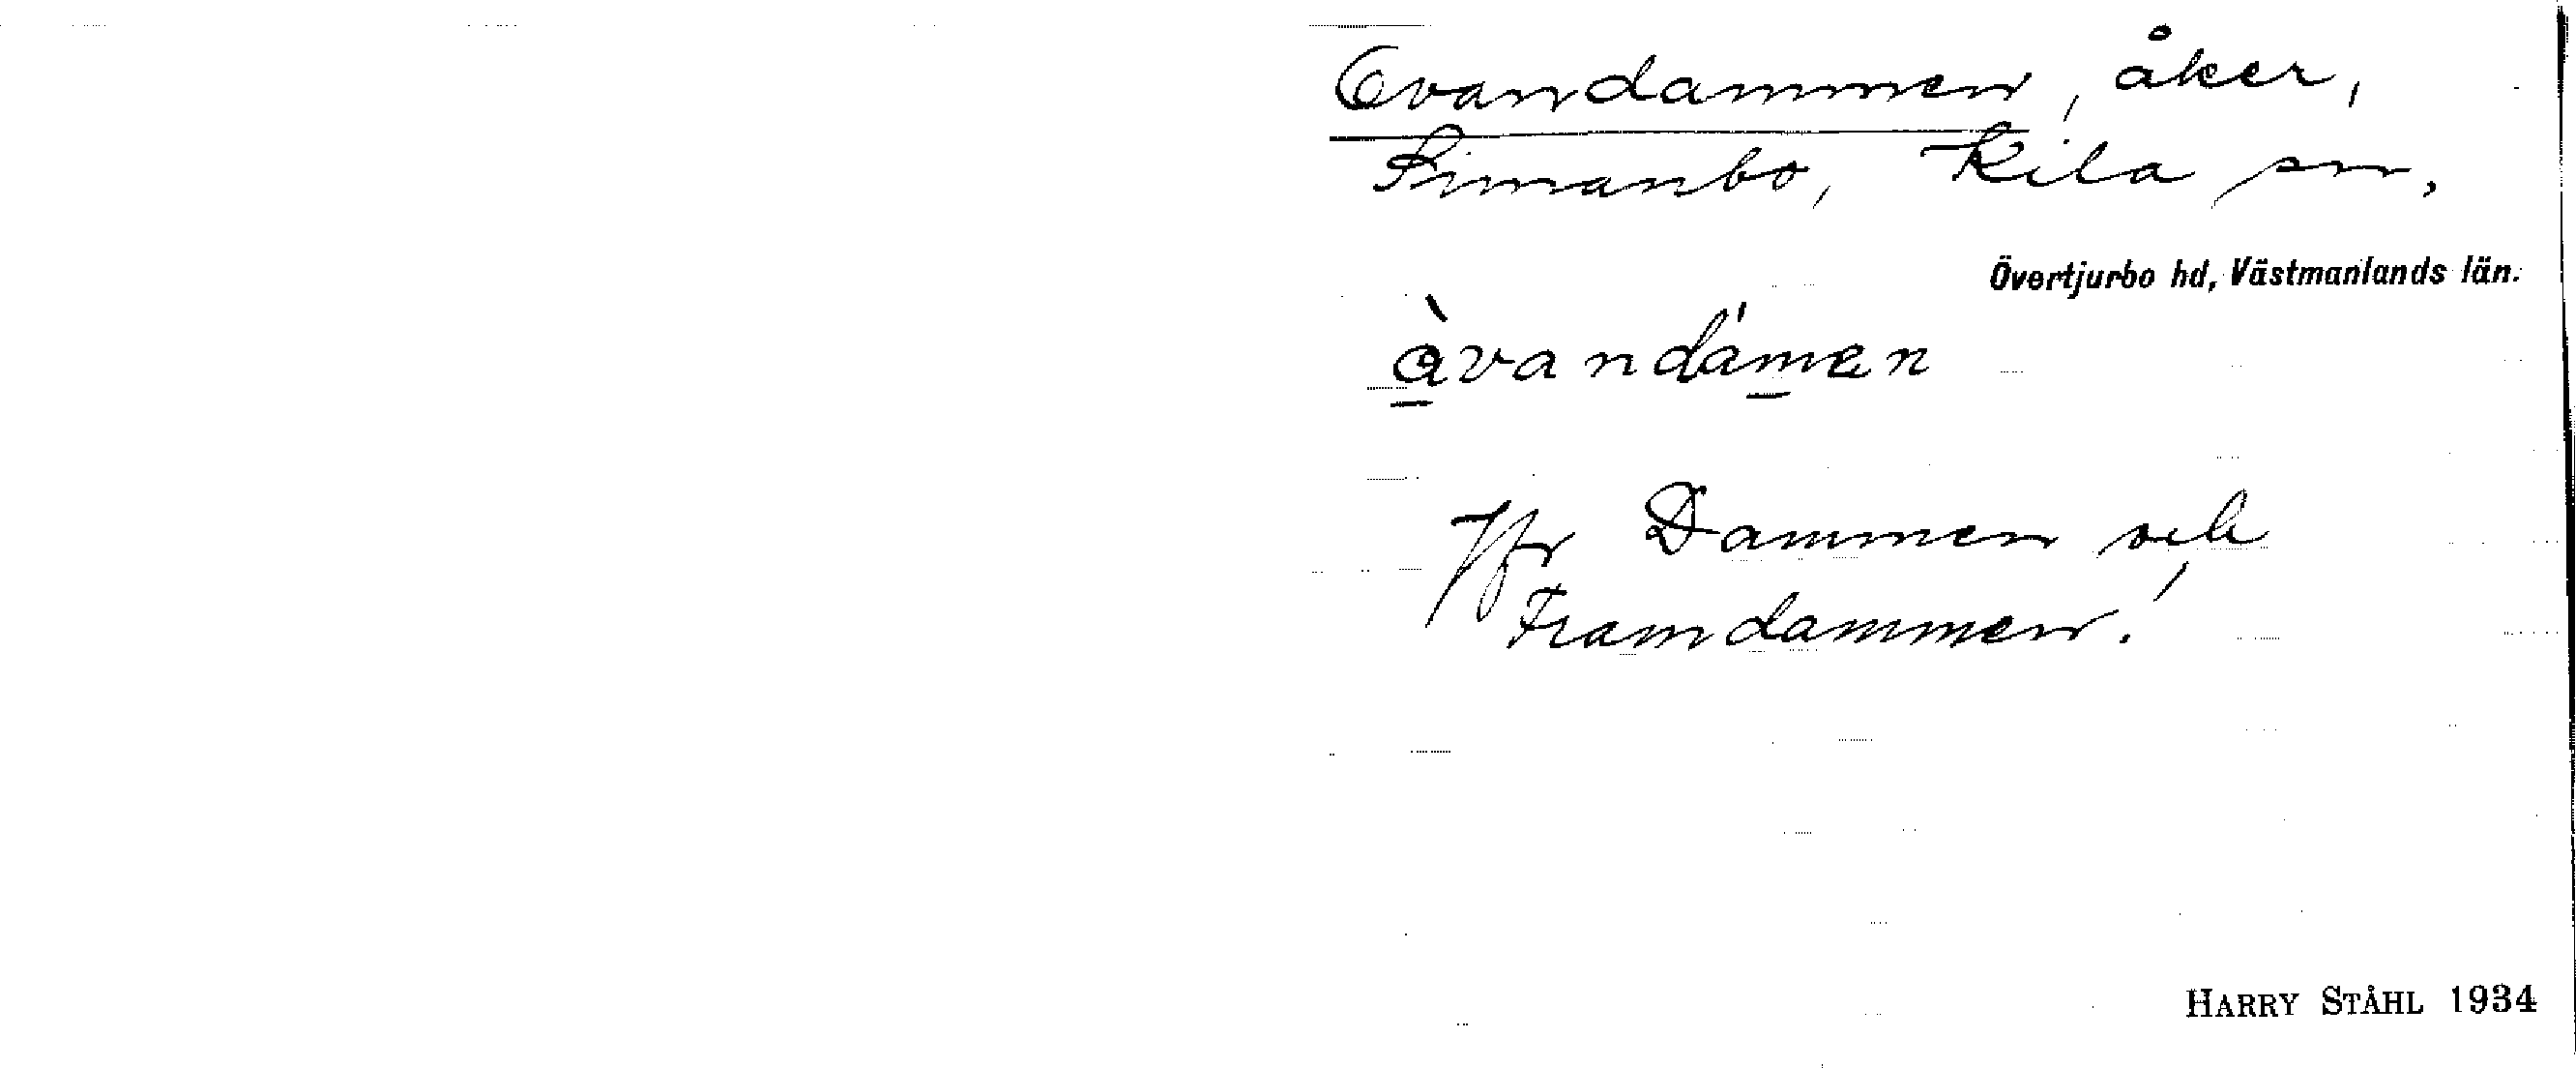 Ovandammen, åker,
Finnanbo, Kila sn,
Övertjurbo hd, Västmanlands län.
àvandámen
Jfr Dammen och
Framdammen!
HARRY STÅHL 1934